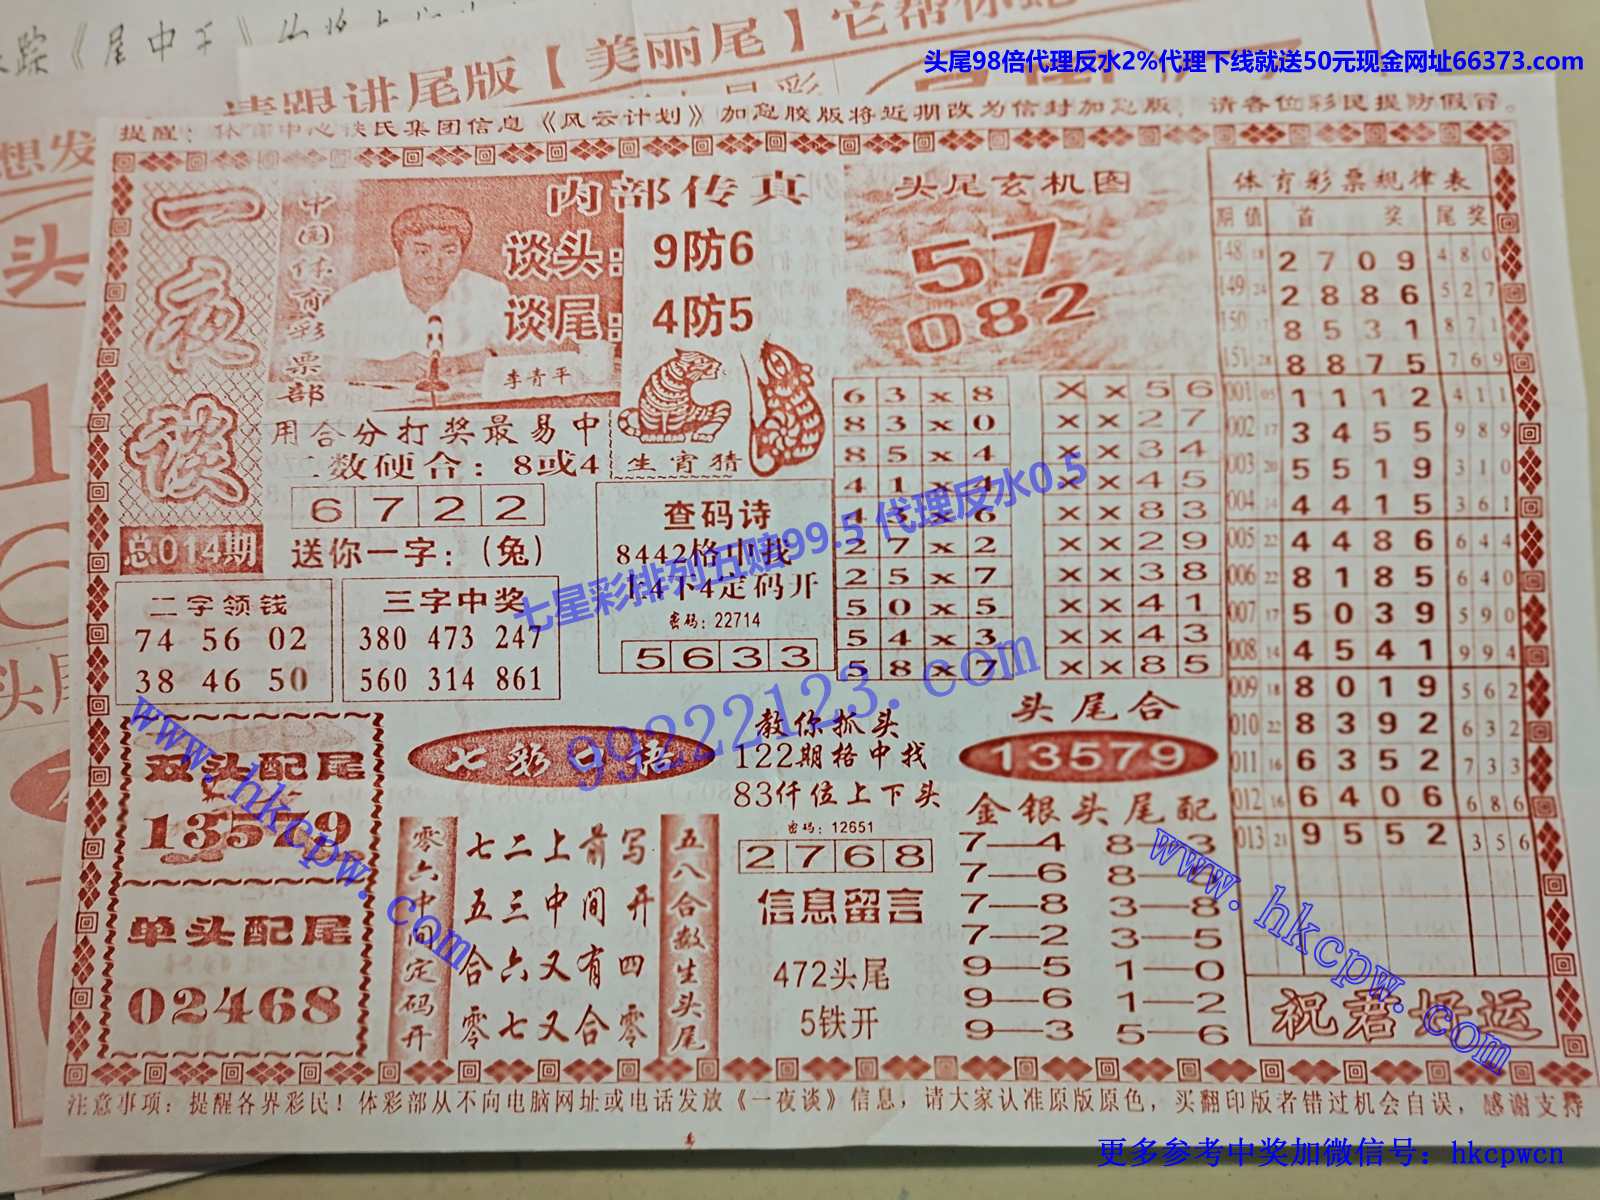 头尾98倍代理反水2%代理下线就送50元现金网址66373.com
踪《尾中王》
请跟讲尾版【美丽尾】它帮你
想发
头
头尾
提醒：体育中心谈民集团信息《风云计划》加急胶版将近期改为信封加急版，请各位彩民提防假冒。
一夜谈
总014期
中国体育彩票部
内部传真
谈头：9防6
谈尾：4防5
李青平
用合分打奖最易中
二数硬合：8或4
生肖猜
6 7 2 2
送你一字：（兔）
头尾玄机图
57
082
查码诗
8442格中找
上4下4定码开
密码：22714
5 6 3 3
二字领钱
74 56 02
38 46 50
三字中奖
380 473 247
560 314 861
6 3 x 8 X x 5 6
8 3 x 0 x x 2 7
8 5 x 4 x x 3 4
4 1 x 4 x x 4 5
4 3 x 6 x x 8 3
2 7 x 2 x x 2 9
2 5 x 7 x x 3 8
5 0 x 5 x x 4 1
5 4 x 3 x x 4 3
5 8 x 7 x x 8 5
体育彩票规律表
期值 首 奖 尾奖
148 18 2 7 0 9 4 8 0
149 24 2 8 8 6 5 2 7
150 17 8 5 3 1 8 7 1
151 28 8 8 7 5 7 6 9
001 05 1 1 1 2 4 1 1
002 17 3 4 5 5 9 8 9
003 20 5 5 1 9 3 1 0
004 14 4 4 1 5 3 6 1
005 22 4 4 8 6 6 4 4
006 22 8 1 8 5 6 4 0
007 17 5 0 3 9 5 9 0
008 14 4 5 4 1 9 9 4
009 18 8 0 1 9 5 6 2
010 22 8 3 9 2 6 3 2
011 16 6 3 5 2 7 3 3
012 16 6 4 0 6 6 8 6
013 21 9 5 5 2 3 5 6
祝君好运
双头配尾
13579
单头配尾
02468
七彩口语
零六中间定码开
七二上前写
五三中间开
合六又有四
零七又合零
五八合数生头尾
教你抓头
122期格中找
83仟位上下头
密码：12651
2 7 6 8
信息留言
472头尾
5铁开
头尾合
13579
金银头尾配
7—4 8—3
7—6 8—
7—8 3—8
7—2 3—5
9—5 1—0
9—6 1—2
9—3 5—6
注意事项：提醒各界彩民！体彩部从不向电脑网址或电话发放《一夜谈》信息，请大家认准原版原色，买翻印版者错过机会自误，感谢支持
七星彩排列五赔99.5 代理反水0.5
99222123.com
www.hkcpw.com
www.hkcpw.com
更多参考中奖加微信号：hkcpwcn